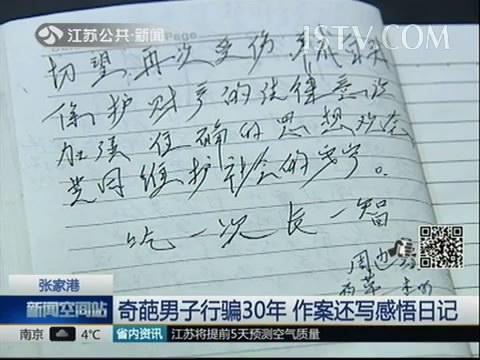 江苏公共·新闻
JSTV.COM
Page
切望再次受伤
保护财产的法律意识
加强正确的思想观念
共同维护社会的安宁。
吃一次长一智
张家港
新闻空间站
奇葩男子行骗30年 作案还写感悟日记
南京 4℃ 省内资讯 江苏将提前5天预测空气质量